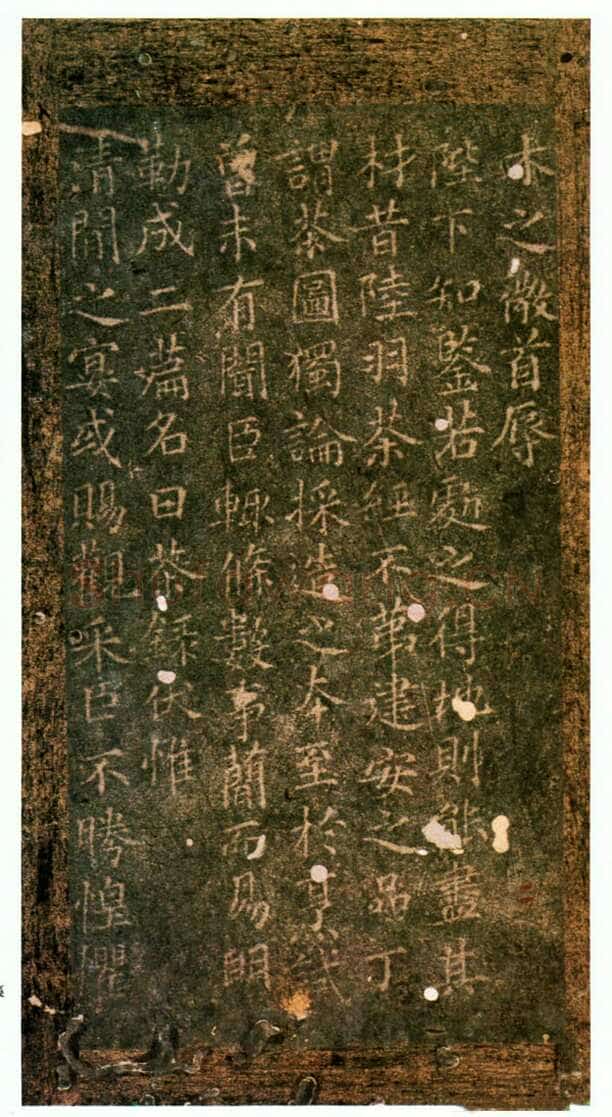 木之微首辱
陛下知鑒若處之得地則能盡其
材昔陸羽茶經不第建安之品丁
謂茶圖獨論採造之本至於烹試
曾未有聞臣輒條數事簡而易明
勒成二篇名曰茶錄伏惟
清閒之宴或賜觀采臣不勝惶懼